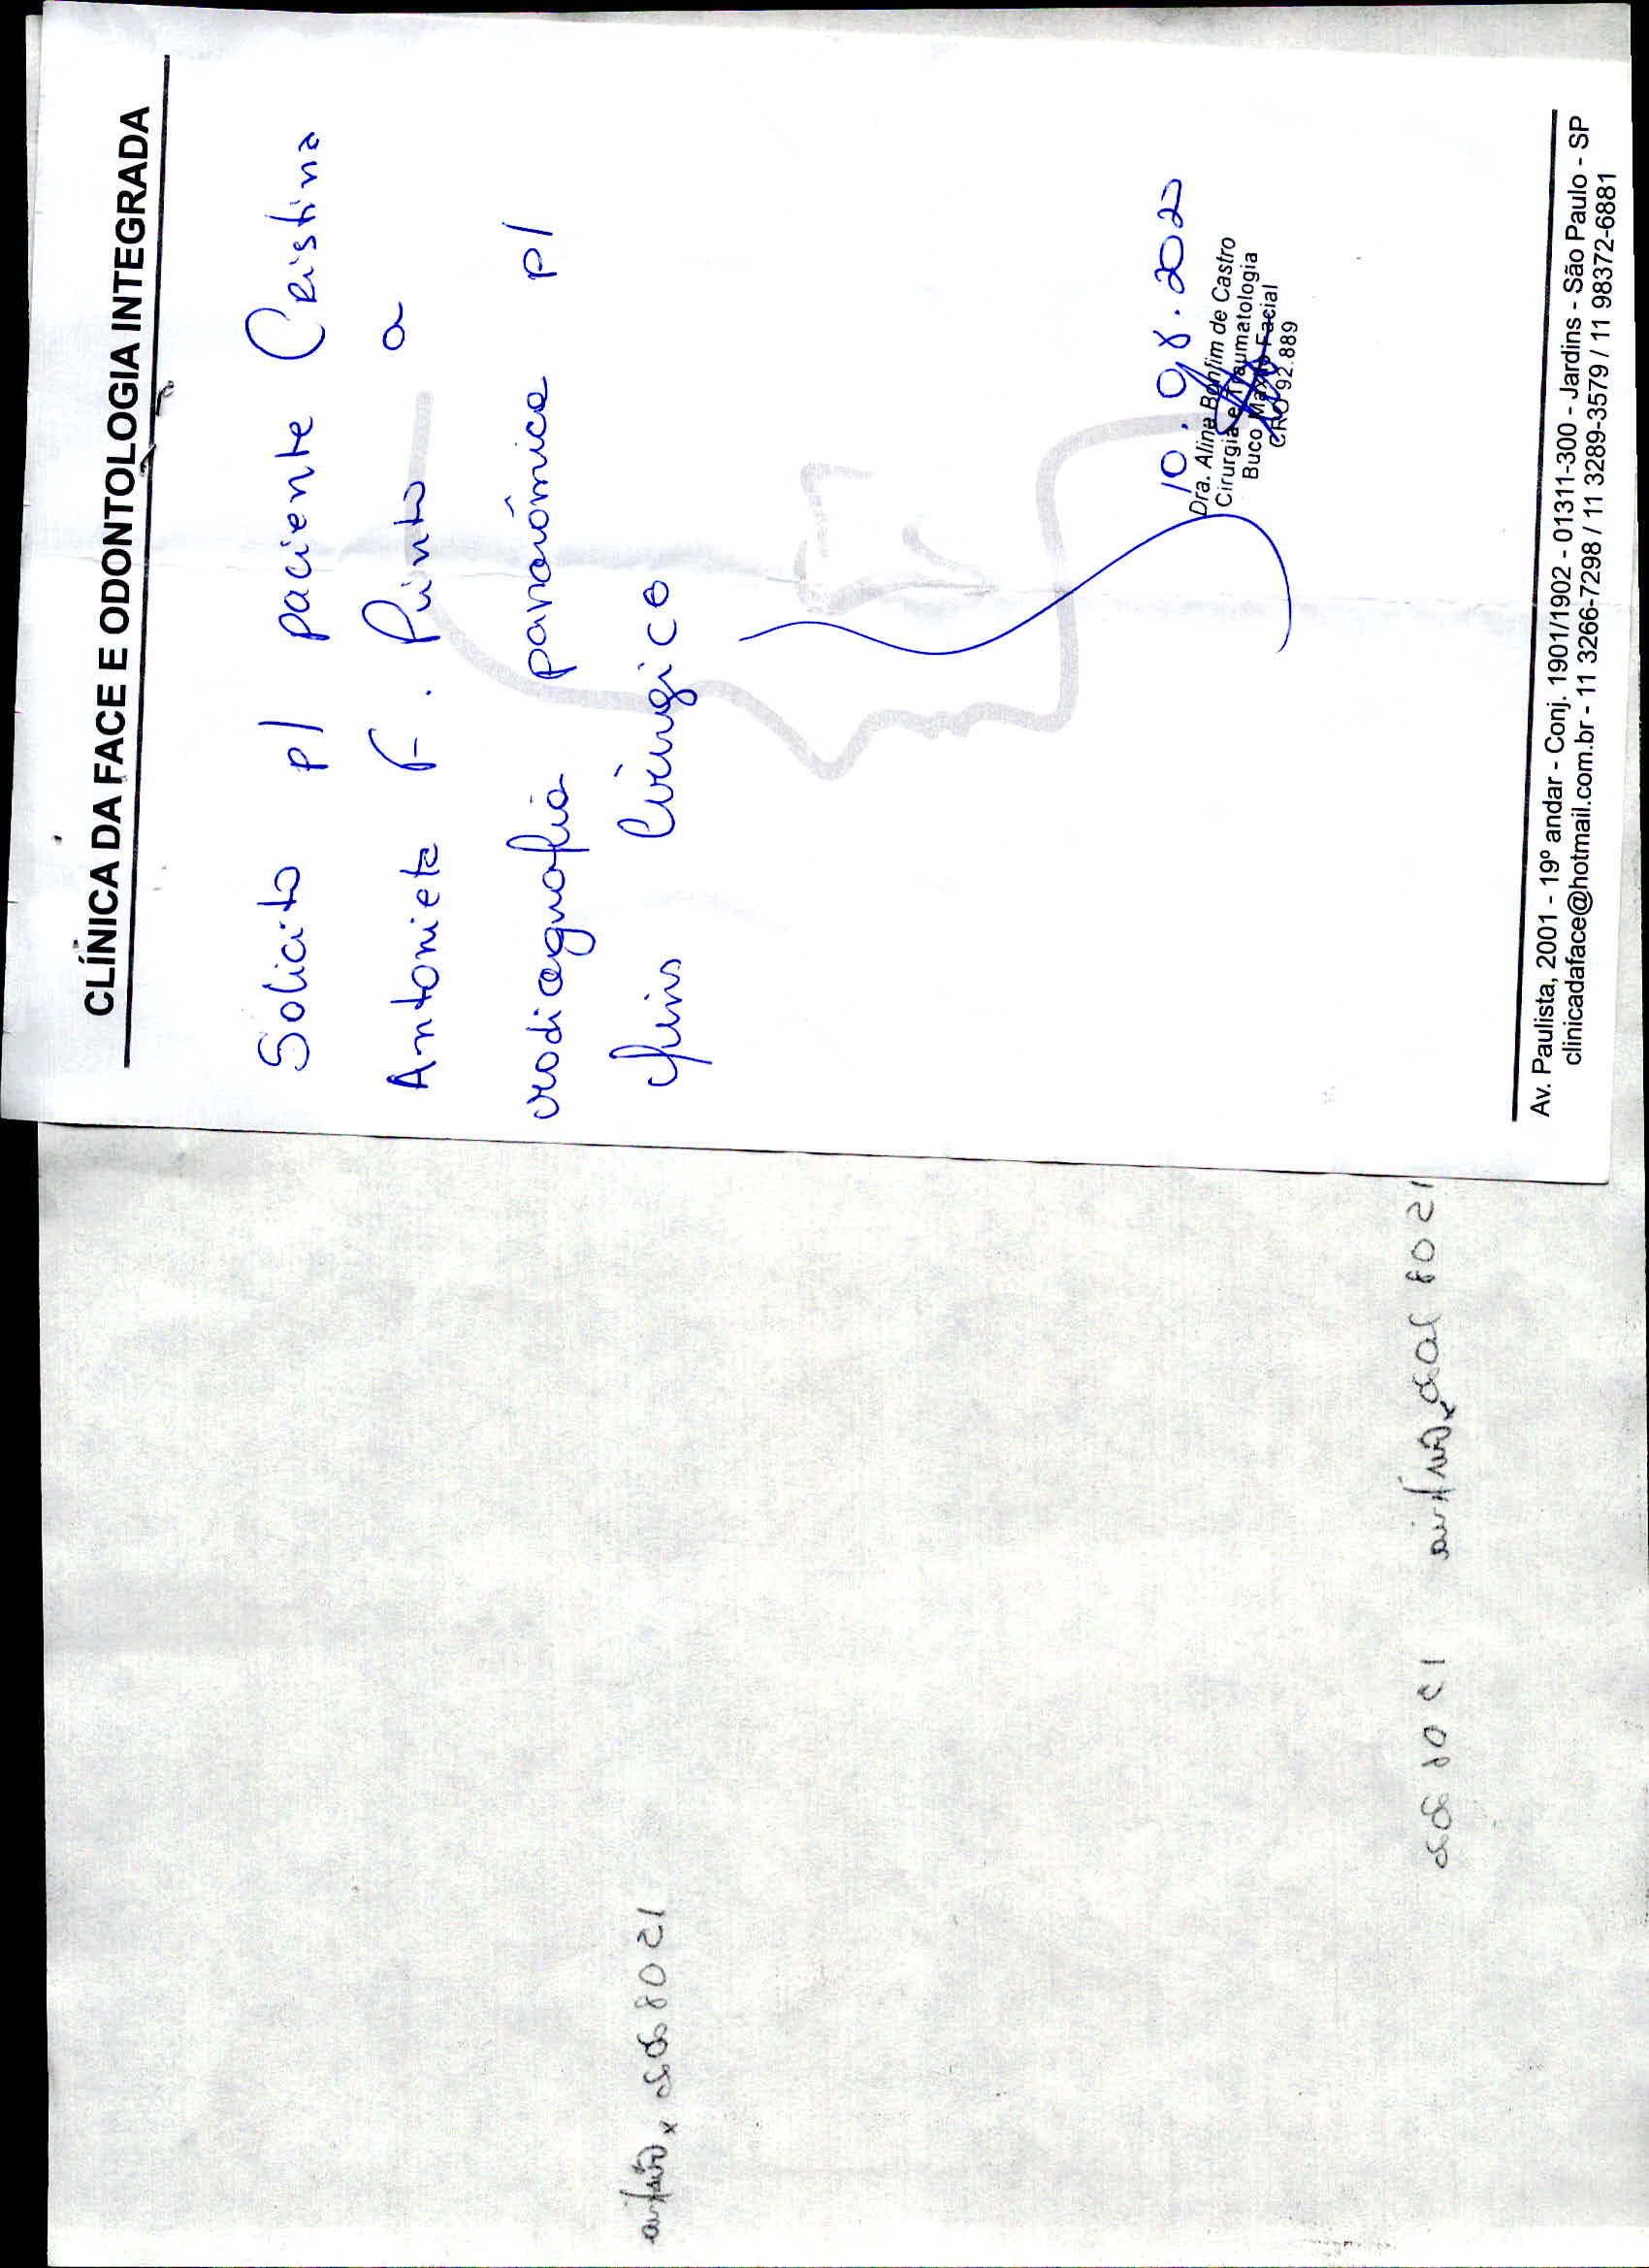 CLÍNICA DA FACE E ODONTOLOGIA INTEGRADA
Solicito p/ paciente Cristina
Antonieta F. Pinto a
radiografia panorâmica p/
fins Cirúrgico
10.08.2020
Dra. Aline Bonfim de Castro
Cirurgia e Traumatologia
Buco Maxilo Facial
CRO 92.889
Av. Paulista, 2001 - 19º andar - Conj. 1901/1902 - 01311-300 - Jardins - São Paulo - SP
clinicadaface@hotmail.com.br - 11 3266-7298 / 11 3289-3579 / 11 98372-6881